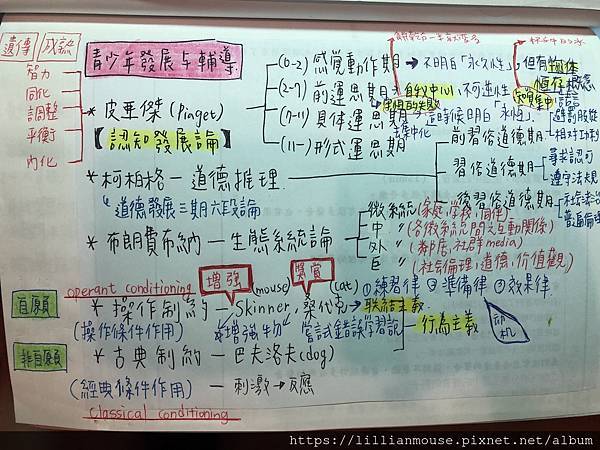 遺傳 成熟
智力
同化
調整
平衡
內化
青少年發展与輔導
* 皮亞傑 (Piaget)
【認知發展論】
(0-2) 感覺動作期 → 不明白「永久性」,但有物体
(2-7) 前運思期 自我中心,不可逆性 知覺集中
(7-11) 具体運思期 這時候明白
(11-) 形式運思期
恆存概念
* 柯柏格 — 道德推理
道德發展三期六段論
前習俗道德期
習俗道德期 尋求認可
遵守法規
後習俗道德期
普遍倫理
* 布朗費布納 — 生態系統論
微系統 (家庭,學校,個体)
中 〃 (各微系統間交互動關係)
外 〃 (鄰居,社群media)
巨 〃 (社会倫理,道德,价值觀)
operant conditioning 增強 (mouse) 獎賞 (cat) ①練習律 ②準備律 ③效果律
自願 * 操作制約 — Skinner,桑代克 → 联結主義
(操作條件作用) *增強牛物 嘗試錯誤學習説 行為主義
非自願 * 古典制約 — 巴夫洛夫(dog)
(經典條件作用) — 刺激 → 反應
classical conditioning
https://lillianmouse.pixnet.net/album